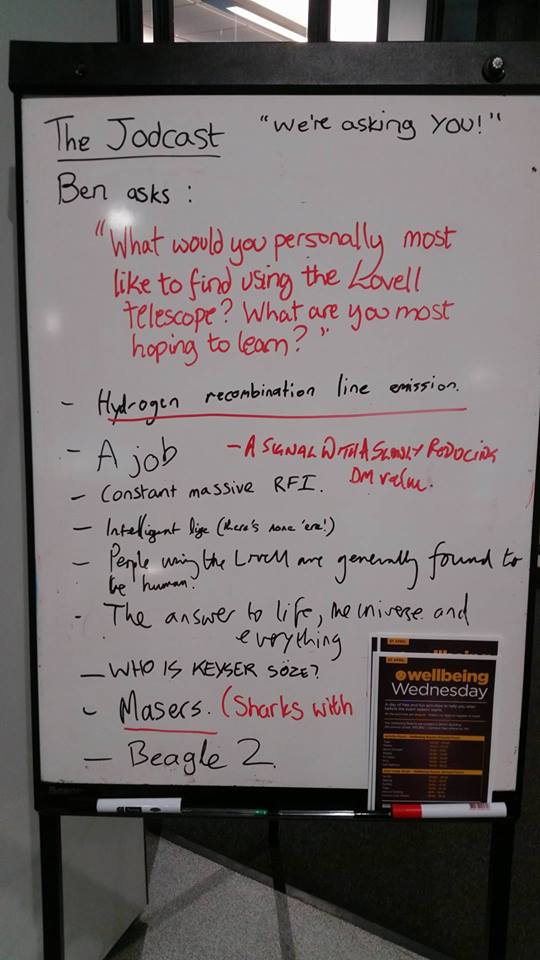 The Jodcast "We're asking YOU!"
Ben asks :
"What would you personally most
like to find using the Lovell
telescope? What are you most
hoping to learn?"
- Hydrogen recombination line emission.
- A job - A SIGNAL WITH A SLOWLY REDUCING
DM value.
- Constant massive RFI.
- Intelligent life (there's none 'ere!)
- People using the Lovell are generally found to
be human.
- The answer to life, the universe and
everything
- WHO IS KEYSER SÖZE?
- Masers. (Sharks with
- Beagle 2.
wellbeing
Wednesday